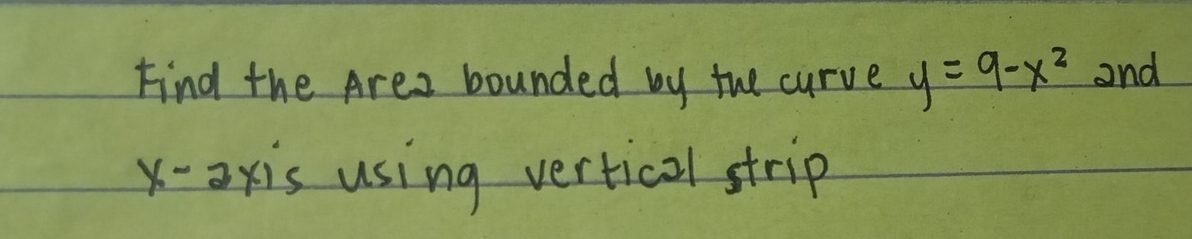 Find the Area bounded by the curve y = 9-x² and
x-axis using vertical strip